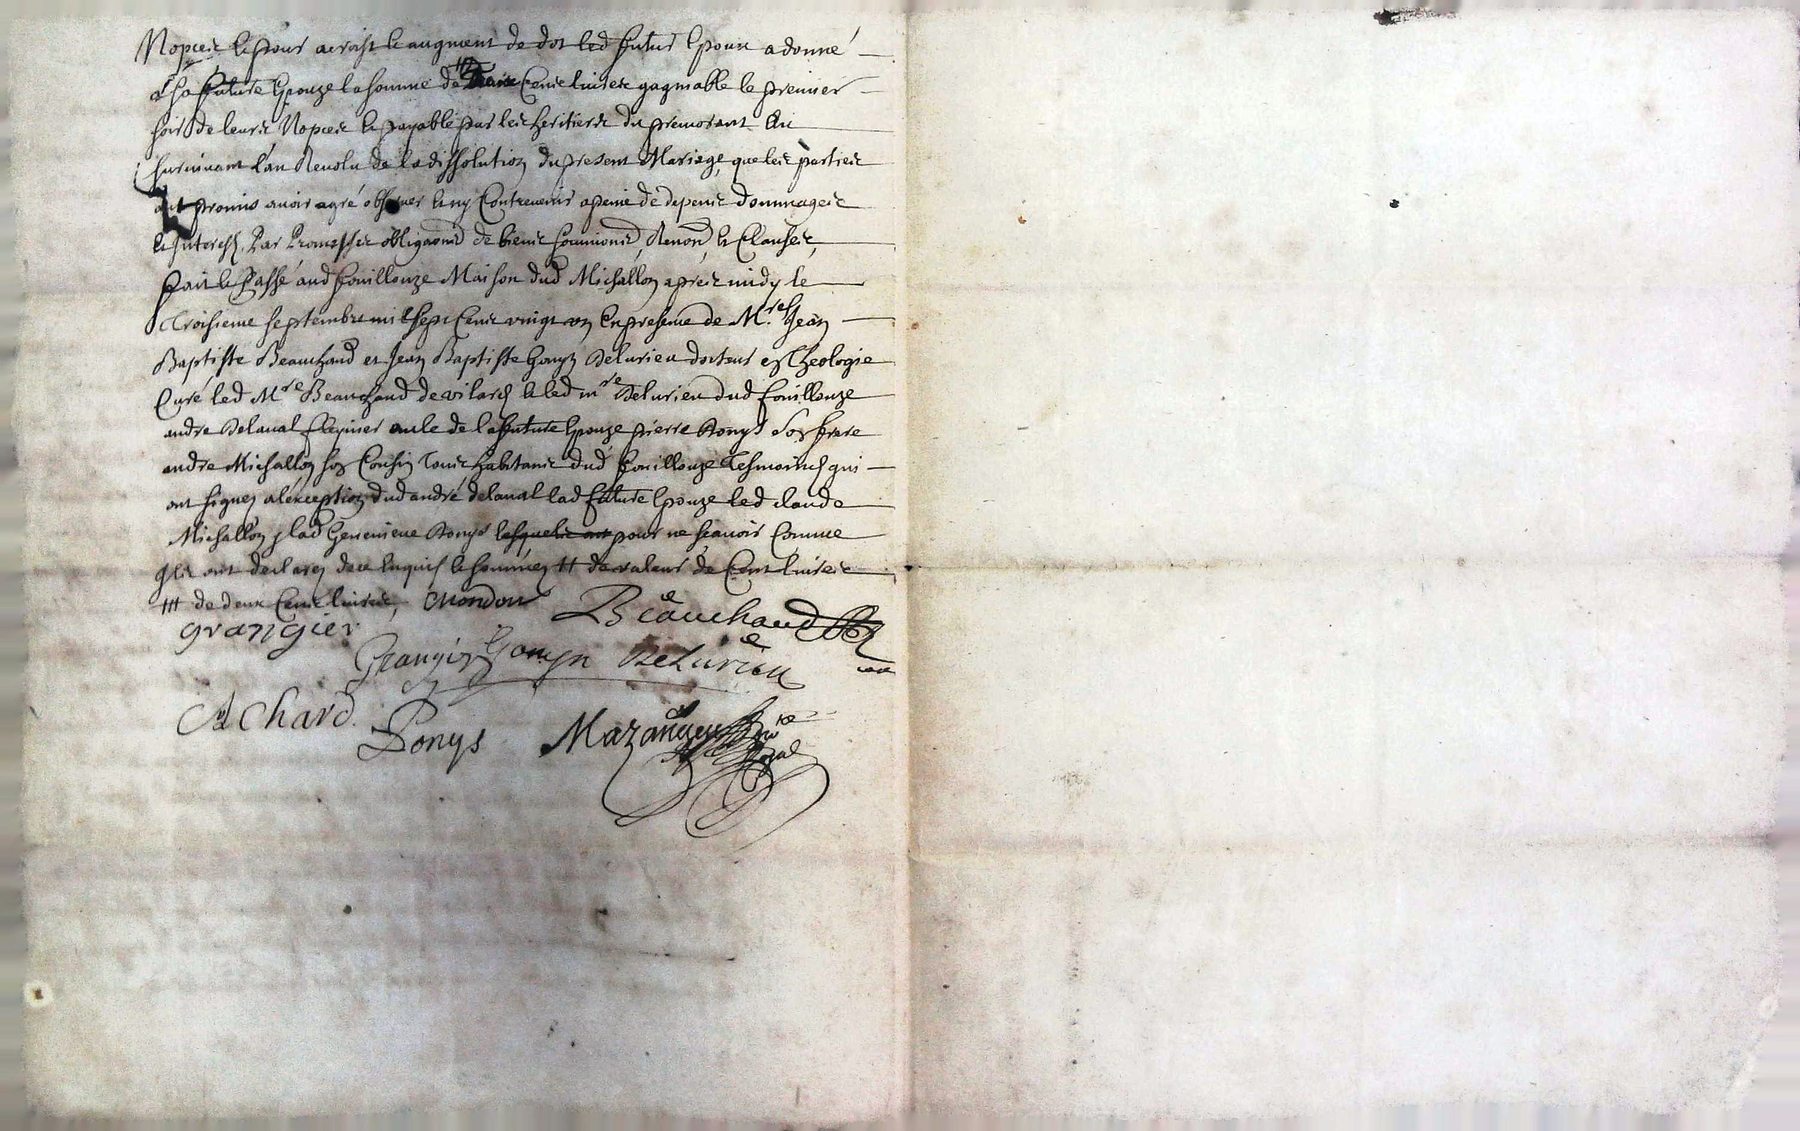 Nopces Et pour accroist Et augment de dot led futur Epoux a donné
a sa future Epouze la somme de ttt Cents livres gagnable le premier
soir de leurs Nopces Et payable par les heritiers du premorant Au
survivant l'an Revolu de la dissolution du present Mariage, que les parties
ont promis avoir agré observer Et ny Contrevenir a peine de depens dommages
Et Interests, Par Promesses obligaons de biens soumions, Renons, Et Clauses,
fait Et Passé aud fouillouze Maison dud Michallon apres midy le
Troisieme septembre mil sept Cents vingt un En presence de Mres Jean
Baptiste Beauchaud et Jean Baptiste Gonyn Delurieu docteur en Theologie
Curé led Mre Beauchaud de vilars Et led mre Delurieu dud fouillouze
andre Delaval oncle de la future Epouze pierre Ronys son frere
andre Michallon son Cousin Tous habitants dud fouillouze Tesmoins qui
ont signez a lexception dud andré delaval lad future Epouze led claude
Michallon Et lad Genevieve Ronys lesquels ont pour ne scavoir Comme
Ils ont declarez de ce Enquis Et sommez tt de valeur de Cent livres
ttt de deux Cents livres, Mondon Beauchaud
grangier
Gonyn Delurieu
Achard
Ronys Mazanyeu Nore Royal